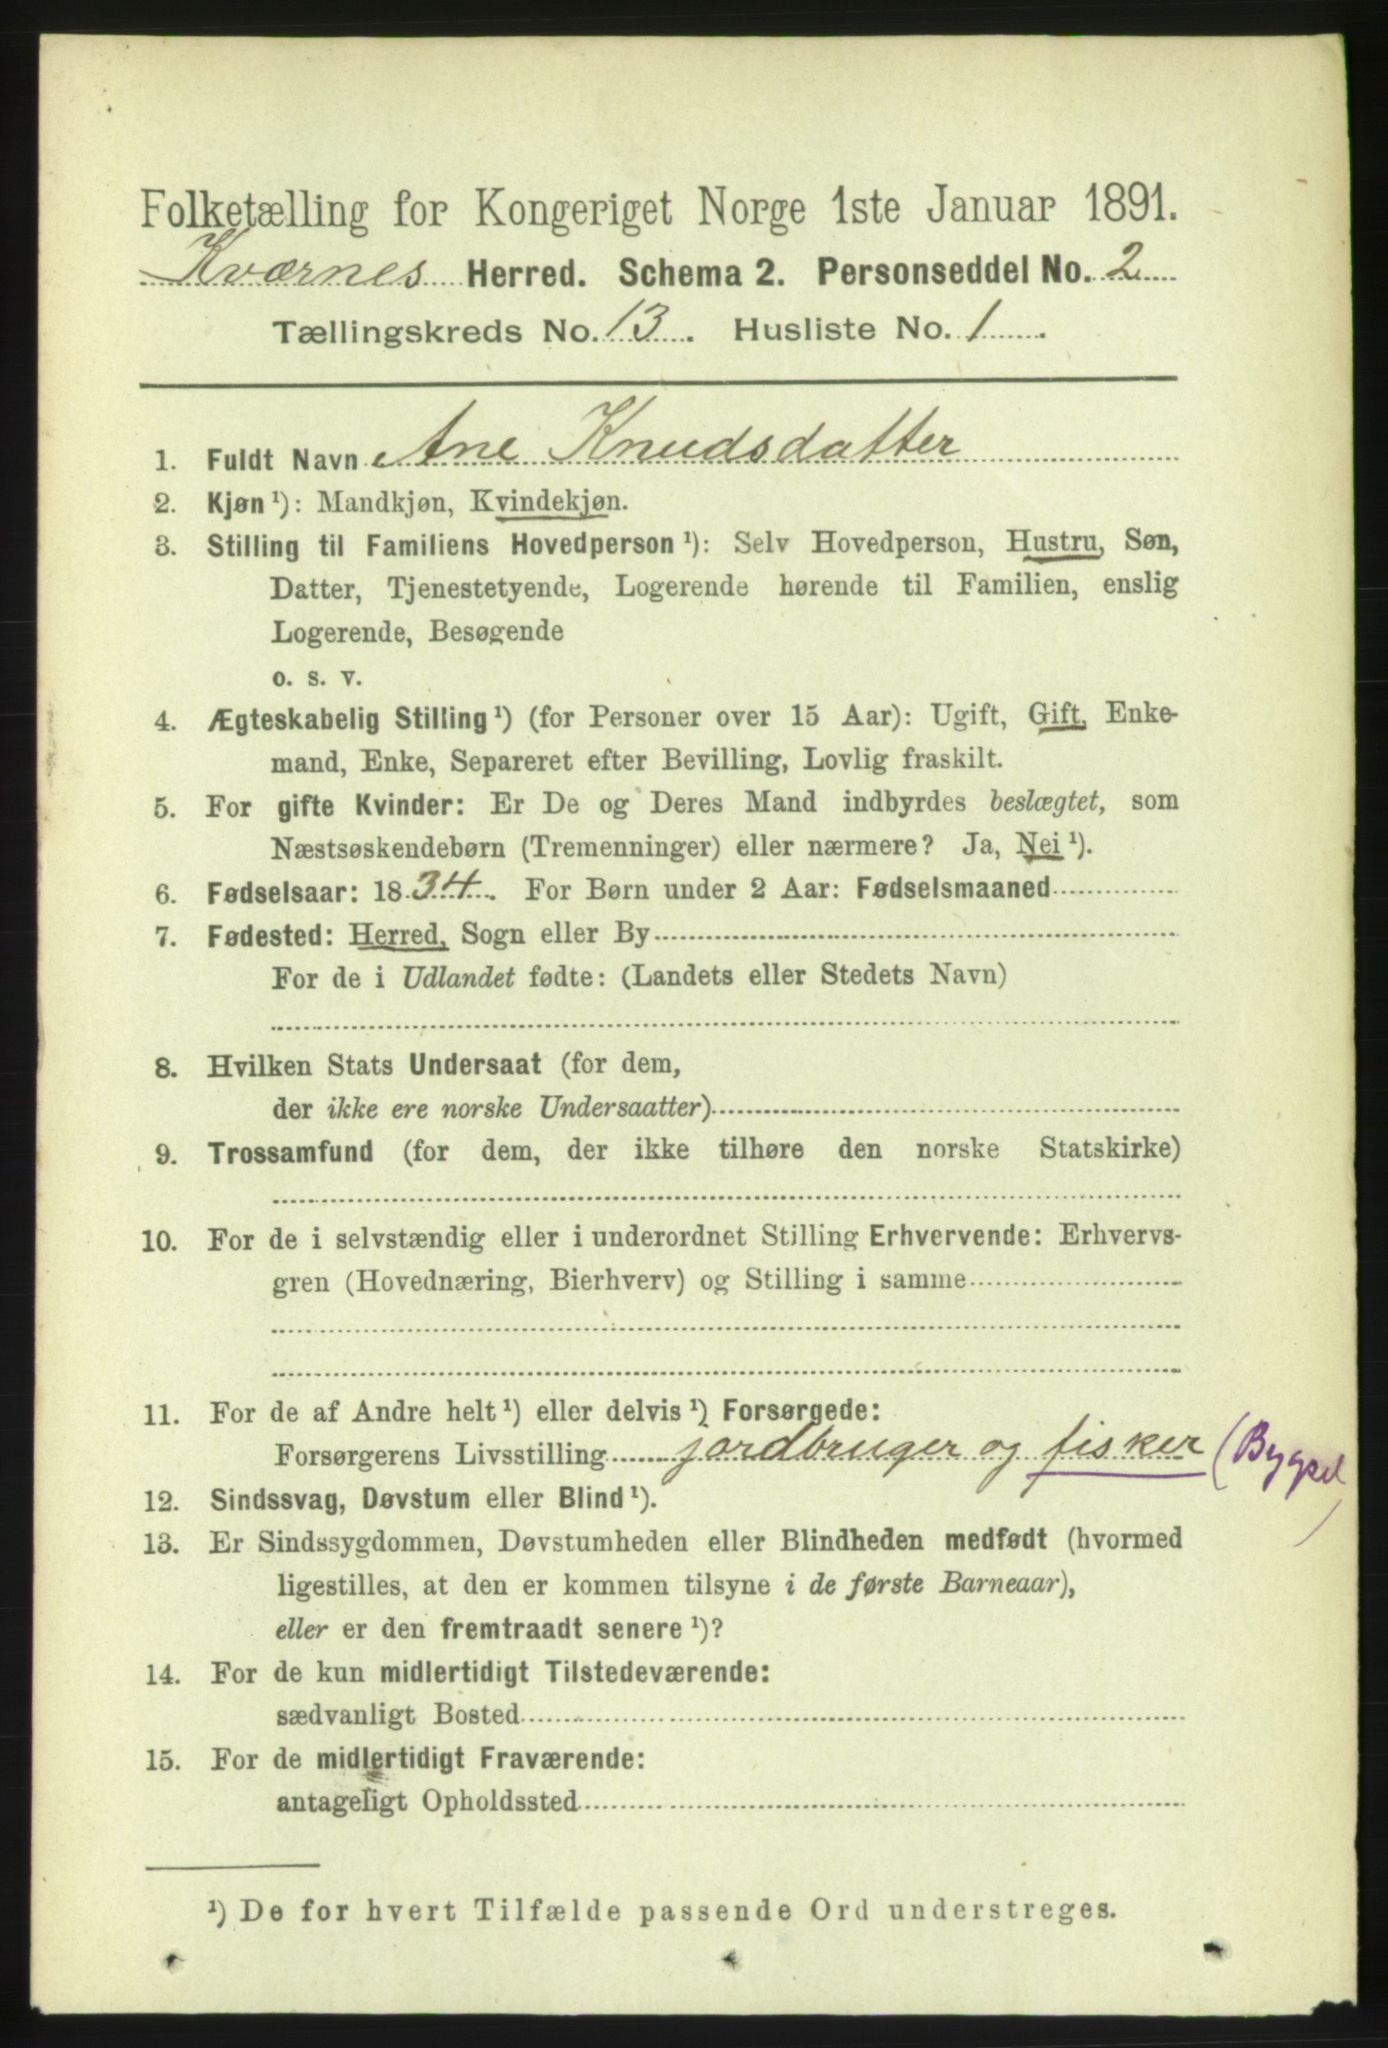 Folketælling for Kongeriget Norge 1ste Januar 1891.
Kværnes Herred. Schema 2. Personseddel No. 2
Tællingskreds No. 13. Husliste No. 1.
1. Fuldt Navn Ane Knudsdatter
2. Kjøn¹): Mandkjøn, Kvindekjøn.
3. Stilling til Familiens Hovedperson¹): Selv Hovedperson, Hustru, Søn,
Datter, Tjenestetyende, Logerende hørende til Familien, enslig
Logerende, Besøgende
o. s. v.
4. Ægteskabelig Stilling¹) (for Personer over 15 Aar): Ugift, Gift, Enke-
mand, Enke, Separeret efter Bevilling, Lovlig fraskilt.
5. For gifte Kvinder: Er De og Deres Mand indbyrdes beslægtet, som
Næstsøskendebørn (Tremenninger) eller nærmere? Ja, Nei¹).
6. Fødselsaar: 1834. For Børn under 2 Aar: Fødselsmaaned
7. Fødested: Herred, Sogn eller By
For de i Udlandet fødte: (Landets eller Stedets Navn)
8. Hvilken Stats Undersaat (for dem,
der ikke ere norske Undersaatter)
9. Trossamfund (for dem, der ikke tilhøre den norske Statskirke)
10. For de i selvstændig eller i underordnet Stilling Erhvervende: Erhvervs-
gren (Hovednæring, Bierhverv) og Stilling i samme
11. For de af Andre helt¹) eller delvis¹) Forsørgede:
Forsørgerens Livsstilling jordbruger og fisker (Bygsel)
12. Sindssvag, Døvstum eller Blind¹).
13. Er Sindssygdommen, Døvstumheden eller Blindheden medfødt (hvormed
ligestilles, at den er kommen tilsyne i de første Barneaar),
eller er den fremtraadt senere¹)?
14. For de kun midlertidigt Tilstedeværende:
sædvanligt Bosted
15. For de midlertidigt Fraværende:
antageligt Opholdssted
¹) De for hvert Tilfælde passende Ord understreges.